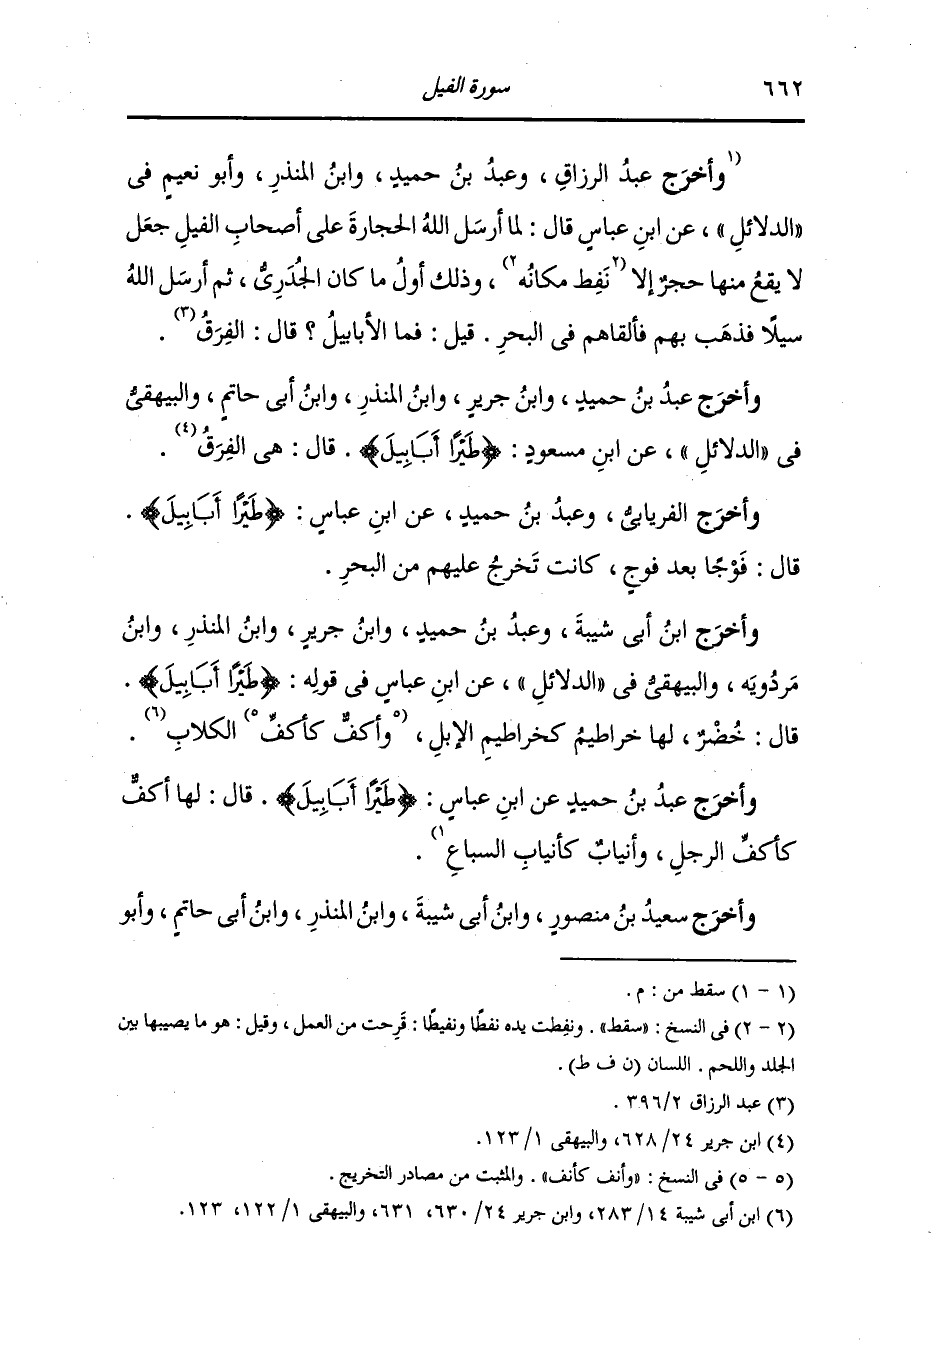 ٦٦٢
سورة الفيل
(١ وأخرَج عبدُ الرزاقِ ، وعبدُ بنُ حميدٍ ، وابنُ المنذرِ ، وأبو نعيمٍ فى
«الدلائلِ» ، عن ابنِ عباسٍ قال : لما أرسَل اللهُ الحجارةَ على أصحابِ الفيلِ جعَل
لا يقعُ منها حجرٌ إلا (٢ نَفِط مكانُه ٢) ، وذلك أولُ ما كان الجُدَرِىُّ ، ثم أرسَل اللهُ
سيلًا فذهَب بهم فألقاهم فى البحرِ . قيل : فما الأبابيلُ ؟ قال : الفِرَقُ (٣) .
وأخرَج عبدُ بنُ حميدٍ ، وابنُ جريرٍ ، وابنُ المنذرِ ، وابنُ أبى حاتمٍ ، والبيهقىُّ
فى «الدلائلِ» ، عن ابنِ مسعودٍ : ﴿طَيْرًا أَبَابِيلَ﴾ . قال : هى الفِرَقُ (٤) .
وأخرَج الفريابىُّ ، وعبدُ بنُ حميدٍ ، عن ابنِ عباسٍ : ﴿طَيْرًا أَبَابِيلَ﴾ .
قال : فَوْجًا بعد فوجٍ ، كانت تَخرجُ عليهم من البحرِ .
وأخرَج ابنُ أبى شيبةَ ، وعبدُ بنُ حميدٍ ، وابنُ جريرٍ ، وابنُ المنذرِ ، وابنُ
مَردُويَه ، والبيهقىُّ فى «الدلائلِ» ، عن ابنِ عباسٍ فى قولِه : ﴿طَيْرًا أَبَابِيلَ﴾ .
قال : خُضْرٌ ، لها خراطيمُ كخراطيمِ الإبلِ ، (٥ وأكفٌّ كأكفِّ ٥) الكلابِ (٦) .
وأخرَج عبدُ بنُ حميدٍ عن ابنِ عباسٍ : ﴿طَيْرًا أَبَابِيلَ﴾ . قال : لها أكفٌّ
كأكفِّ الرجلِ ، وأنيابٌ كأنيابِ السباعِ ١) .
وأخرَج سعيدُ بنُ منصورٍ ، وابنُ أبى شيبةَ ، وابنُ المنذرِ ، وابنُ أبى حاتمٍ ، وأبو
(١ - ١) سقط من : م .
(٢ - ٢) فى النسخ : «سقط» . ونفِطت يده نفطًا ونفيطًا : قَرِحت من العمل ، وقيل : هو ما يصيبها بين
الجلد واللحم . اللسان (ن ف ط) .
(٣) عبد الرزاق ٣٩٦/٢ .
(٤) ابن جرير ٢٤/ ٦٢٨، والبيهقى ١/ ١٢٣.
(٥ - ٥) فى النسخ : «وأنف كأنف» . والمثبت من مصادر التخريج .
(٦) ابن أبى شيبة ١٤/ ٢٨٣، وابن جرير ٢٤/ ٦٣٠، ٦٣١، والبيهقى ١/ ١٢٢، ١٢٣.